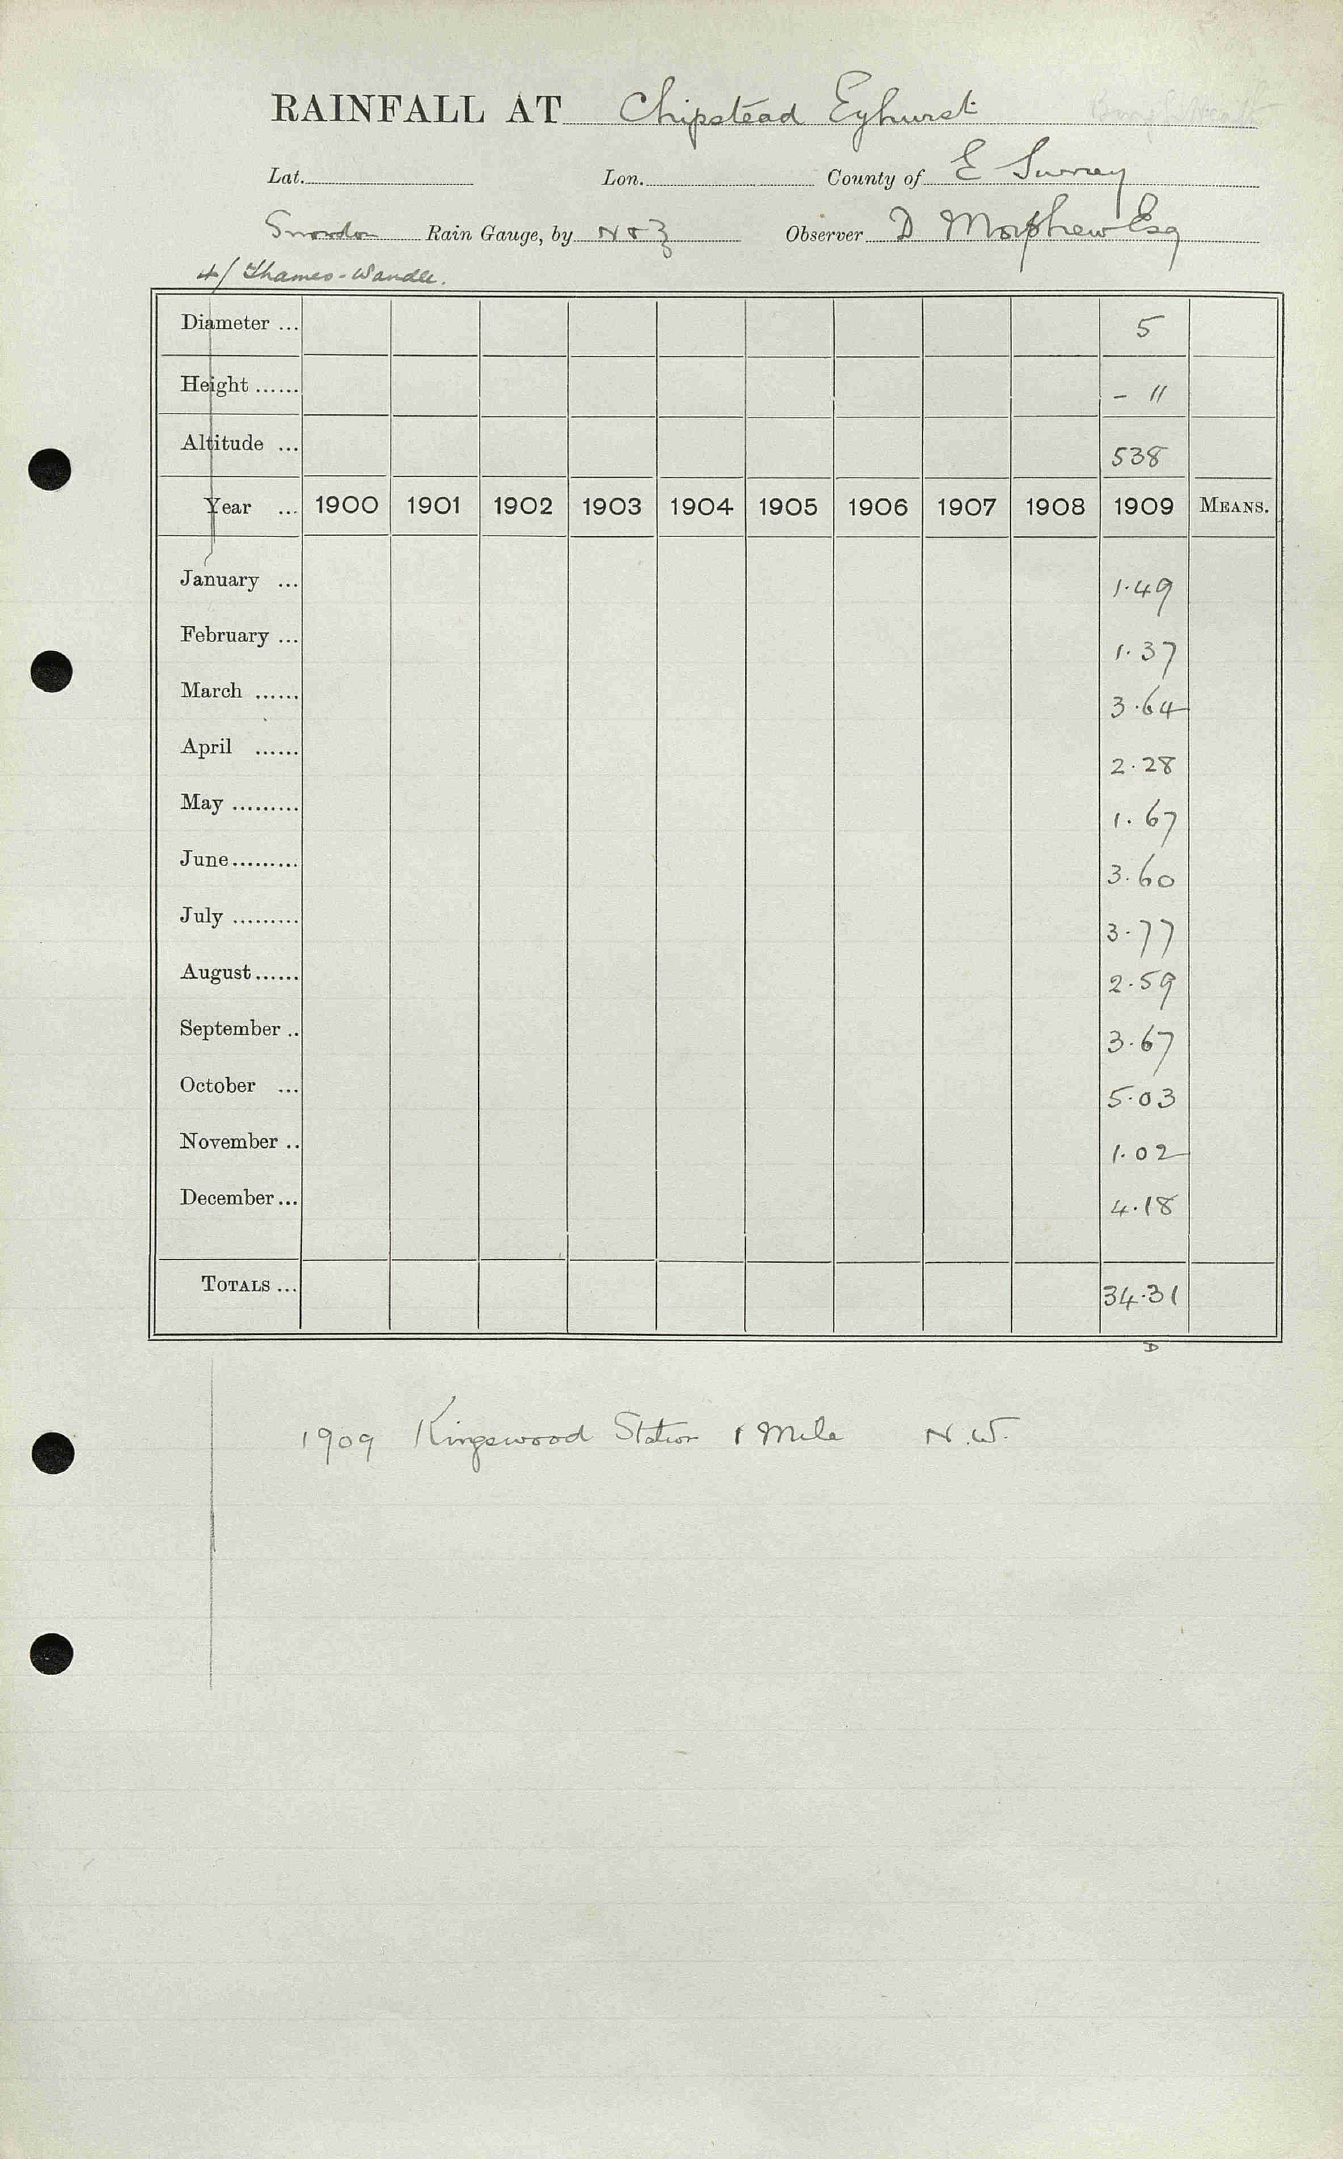 RAINFALL AT Chipstead Eyhurst
Lat. Lon. County of E Surrey
Snowdon Rain Gauge, by N & Z Observer D Morphew Esq
4/ Thames-Wandle.
Diameter ... 5
Height ...... - 11
Altitude ... 538
Year ... 1900 1901 1902 1903 1904 1905 1906 1907 1908 1909 MEANS.
January ... 1.49
February ... 1.37
March ...... 3.64
April ...... 2.28
May ......... 1.67
June ......... 3.60
July ......... 3.77
August ...... 2.59
September .. 3.67
October ... 5.03
November .. 1.02
December ... 4.18
TOTALS ... 34.31
D
1909 Kingswood Station 1 Mile N.W.